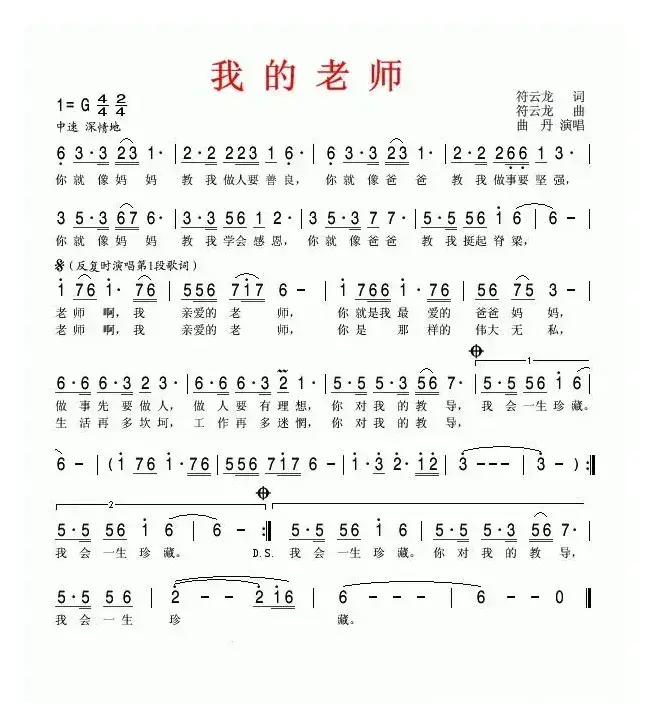 我的老师
1=G 4/4 2/4
符云龙 词
符云龙 曲
中速 深情地
曲 丹 演唱
6 3·3 23 1· | 2·2 223 1 6· | 6 3·3 23 1· | 2·2 266 1 3· |
你就像妈妈 教我做人要善良，你就像爸爸 教我做事要坚强，
3 5·3 67 6· | 3·3 56 1 2· | 3 5·3 7 7· | 5·5 56 i 6 | 6 - |
你就像妈妈 教我学会感恩，你就像爸爸 教我挺起脊梁，
(反复时演唱第1段歌词)
i 76 i· 76 | 556 7i7 6 - | i 766 i 6· | 5·5 35 6 7· |
老师啊，我 亲爱的老师， 你就是我最爱的爸爸妈妈，
老师啊，我 亲爱的老师， 你是那样的伟大无私，
1
6·6 6·3 2 3· | 6·6 6·3 2 1· | 5·5 5·3 56 7· | 5·5 56 i 6 |
做事先要做人，做人要有理想，你对我的教导，我会一生珍藏。
生活再多坎坷，工作再多迷惘，你对我的教导，
6 - | (i 76 i·76 | 556 7i7 6 - | i·3 2· i2 | 3 - - - | 3 - ) :||
2
5·5 56 i 6 | 6 - :|| 5·5 56 i 6 | 5·5 5·3 56 7· |
我会一生珍藏。 D.S. 我会一生珍藏。你对我的教导，
5·5 56 | 2 - - 2i6 | 6 - - - | 6 - - 0 ||
我会一生珍 藏。